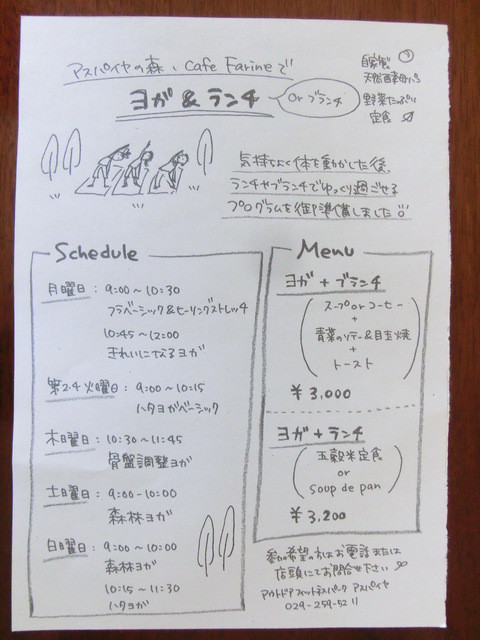 アスパイヤの森、Cafe Farineで
ヨガ & ランチ
or ブランチ
自家製
天然酵母パン
野菜たっぷり
定食
気持ちよく体を動かした後、
ランチやブランチでゆっくり過ごせる
プログラムを御準備しました
Schedule
月曜日：9:00～10:30
フラベーシック&ヒーリングストレッチ
10:45～12:00
きれいになるヨガ
第2.4火曜日：9:00～10:15
ハタヨガベーシック
木曜日：10:30～11:45
骨盤調整ヨガ
土曜日：9:00-10:00
森林ヨガ
日曜日：9:00～10:00
森林ヨガ
10:15～11:30
ハタヨガ
Menu
ヨガ+ブランチ
スープorコーヒー
+
青菜のソテー&目玉焼
+
トースト
¥3,000
ヨガ+ランチ
五穀米定食
or
soup de pan
¥3,200
参加希望の方はお電話または
店頭にてお問合せ下さい
アウトドアフィットネスパーク アスパイヤ
029-259-5211